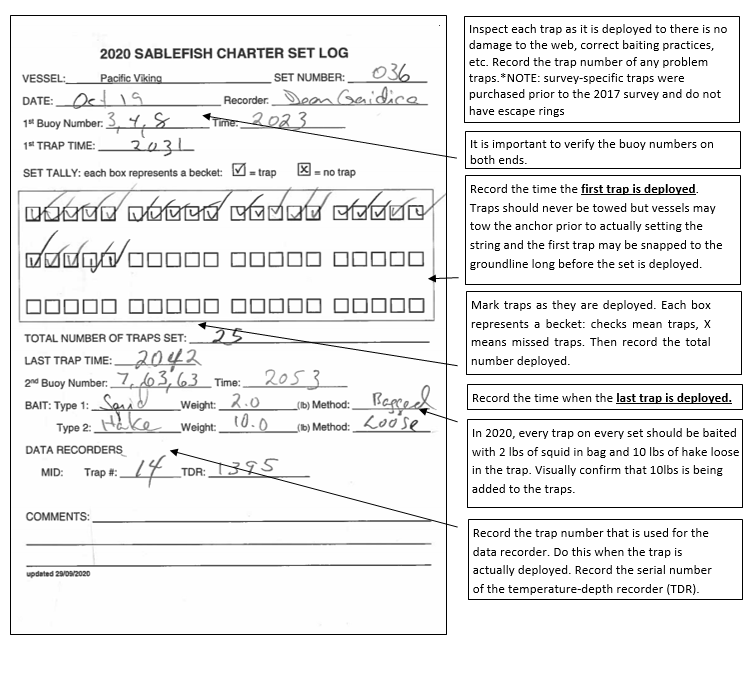 2020 SABLEFISH CHARTER SET LOG
VESSEL: Pacific Viking SET NUMBER: 036
DATE: Oct 19 Recorder: Dean Gaidica
1st Buoy Number: 3, 4, 8 Time: 2023
1st TRAP TIME: 2031
SET TALLY: each box represents a becket: = trap = no trap
TOTAL NUMBER OF TRAPS SET: 25
LAST TRAP TIME: 2042
2nd Buoy Number: 7, 63, 63 Time: 2053
BAIT: Type 1: Squid Weight: 2.0 (lb) Method: Bagged
Type 2: Hake Weight: 10.0 (lb) Method: Loose
DATA RECORDERS
MID: Trap #: 14 TDR: 1395
COMMENTS:
updated 29/09/2020
Inspect each trap as it is deployed to there is no
damage to the web, correct baiting practices,
etc. Record the trap number of any problem
traps.*NOTE: survey-specific traps were
purchased prior to the 2017 survey and do not
have escape rings
It is important to verify the buoy numbers on
both ends.
Record the time the first trap is deployed.
Traps should never be towed but vessels may
tow the anchor prior to actually setting the
string and the first trap may be snapped to the
groundline long before the set is deployed.
Mark traps as they are deployed. Each box
represents a becket: checks mean traps, X
means missed traps. Then record the total
number deployed.
Record the time when the last trap is deployed.
In 2020, every trap on every set should be baited
with 2 lbs of squid in bag and 10 lbs of hake loose
in the trap. Visually confirm that 10lbs is being
added to the traps.
Record the trap number that is used for the
data recorder. Do this when the trap is
actually deployed. Record the serial number
of the temperature-depth recorder (TDR).